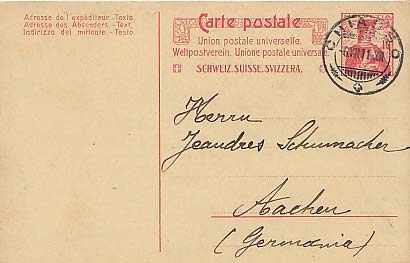 Adresse de l'expéditeur.-Texte.
Adresse des Absenders.-Text.
Indirizzo del mittente.-Testo.
Carte postale
Union postale universelle.
Weltpostverein. Unione postale universale
SCHWEIZ. SUISSE. SVIZZERA.
CHIASSO
Herrn
Jeandres Schumacher
Aachen
(Germania)